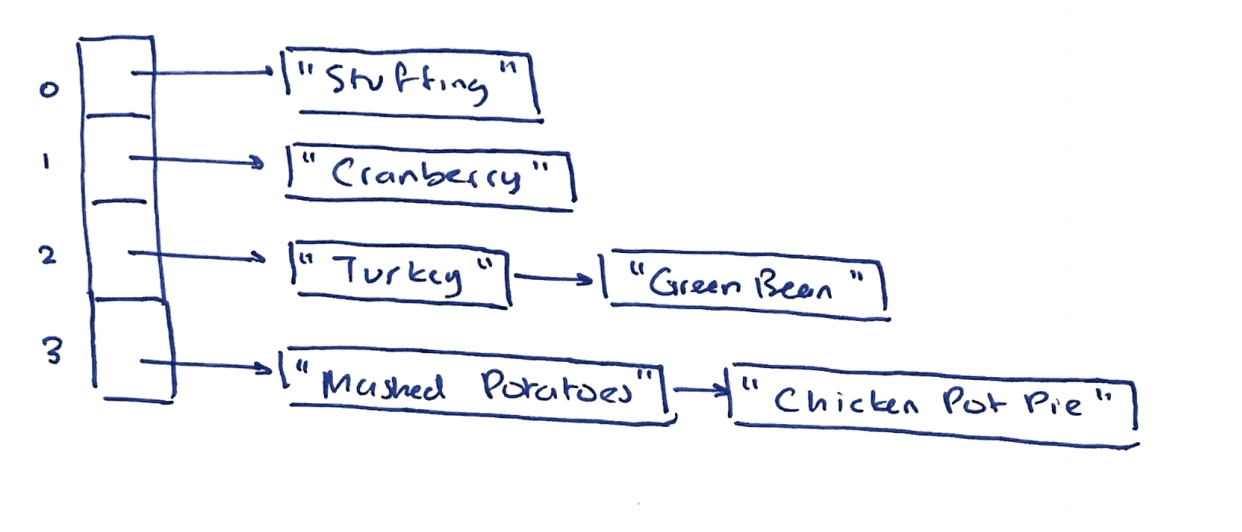 0 "Stuffing"
1 "Cranberry"
2 "Turkey" "Green Bean"
3 "Mashed Potatoes" "Chicken Pot Pie"